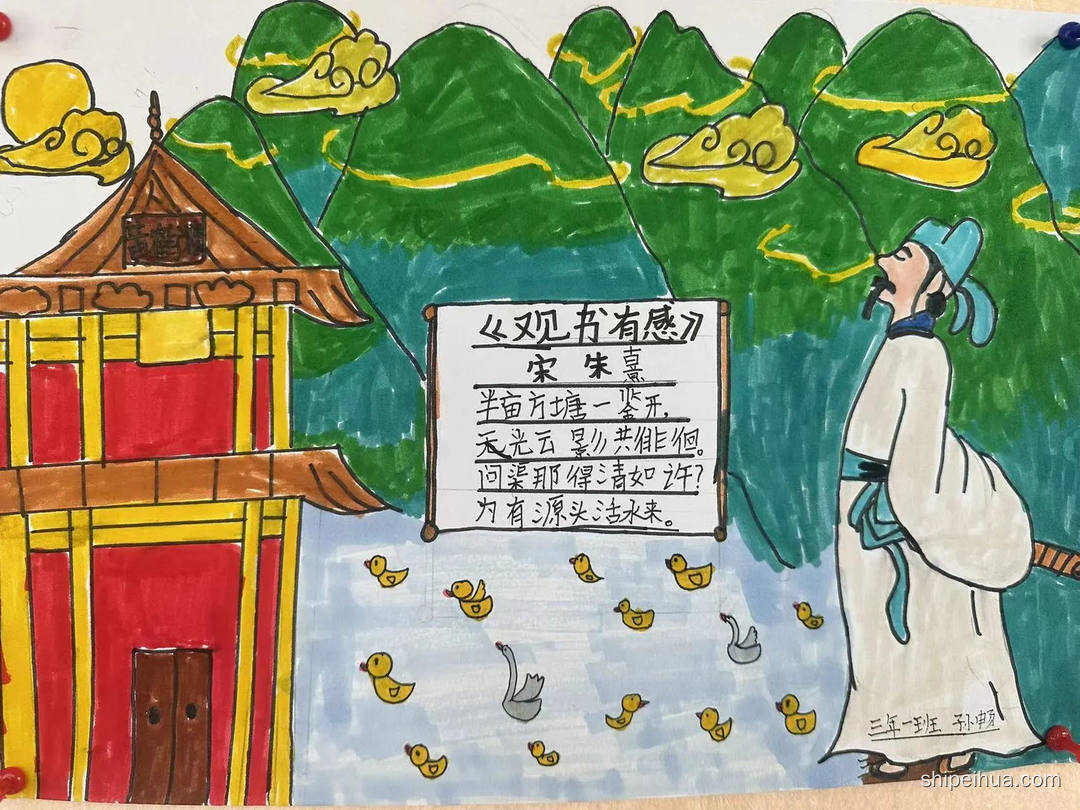 《观书有感》
宋 朱熹
半亩方塘一鉴开,
天光云影共徘徊。
问渠那得清如许?
为有源头活水来。
三年一班 孙畅
shipeihua.com